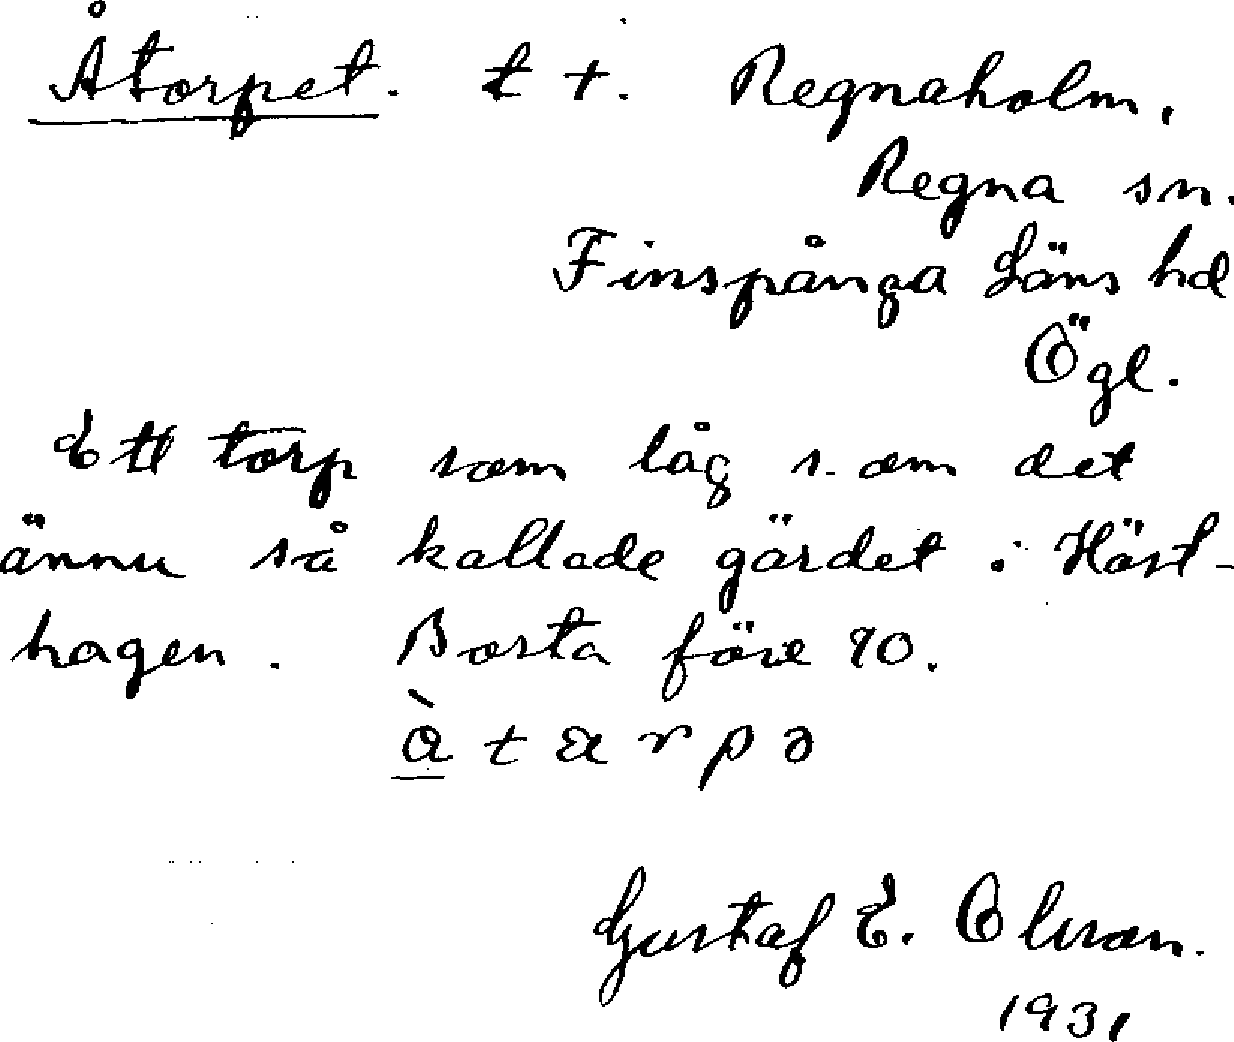 Åtorpet. t t. Regnaholm,
Regna sn.
Finspånga Läns hd
Ögl.
Ett torp som låg s. om det
ännu så kallade gärdet i Häst-
hagen. Borta före 90.
Gustaf E. Olsson.
1931